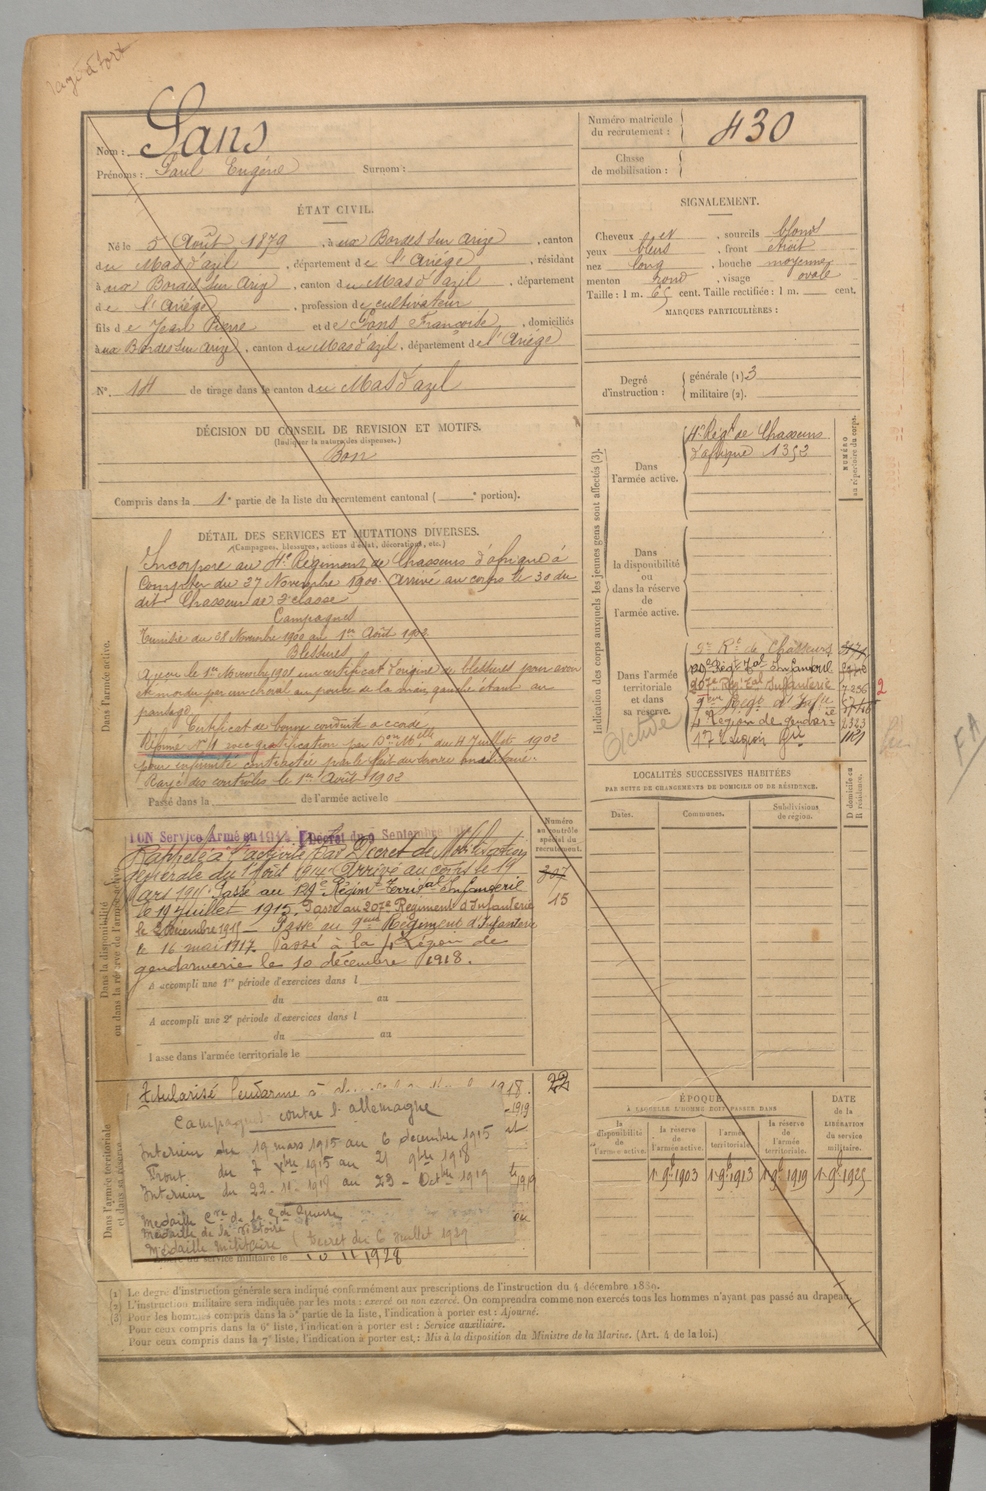 Nom : Sans
Prénoms : Paul Eugène Surnom :
Numéro matricule du recrutement : 430
Classe de mobilisation :
ÉTAT CIVIL.
Né le 5 Août 1879, à aux Bordes sur Arize, canton
du Mas d'azil, département de l'Ariége, résidant
à aux Bordes sur Ariz, canton du Mas d'azil, département
de l'Ariége, profession de cultivateur
fils de Jean Pierre et de Pons Françoise, domiciliés
à aux Bordes sur Arize, canton du Mas d'azil, département de l'Ariége
N° de tirage dans le canton du Mas d'azil
SIGNALEMENT.
Cheveux et, sourcils blonds
yeux bleus, front étroit
nez long, bouche moyenne
menton rond, visage ovale
Taille : 1 m. 65 cent. Taille rectifiée : 1 m. cent.
MARQUES PARTICULIÈRES :
Degré d'instruction : générale (1) 3
militaire (2).
DÉCISION DU CONSEIL DE REVISION ET MOTIFS.
(Indiquer la nature des dispenses.)
Bon
Compris dans la 1e partie de la liste du recrutement cantonal ( e portion).
DÉTAIL DES SERVICES ET MUTATIONS DIVERSES.
(Campagnes, blessures, actions d'éclat, décorations, etc.)
Dans l'armée active.
Incorporé au 4e Régiment de Chasseurs d'afrique à
compter du 27 Novembre 1900. Arrivé au corps le 30 du
dit. Chasseur de 2e classe
Campagnes
Tunisie du 28 Novembre 1900 au 1er Août 1902
Blessures
A reçu le 1er Novembre 1901 un certificat d'origine de blessures pour avoir
été mordu par un cheval au pouce de la main gauche étant au
pansage
Certificat de bonne conduite accordé
Réformé N° 1 avec gratification par Don Mlle du 4 Juillet 1902
pour infirmité contractée par le fait du service militaire.
Rayé des contrôles le 1er Août 1902
Passé dans la de l'armée active le
Dans la disponibilité ou dans la réserve de l'armée active.
ION Service Armé en 1914 Décret du 9 Septembre
Rappelé à l'activité par Décret de Mobilisation
générale du 1er Août 1914. Arrivé au corps le 19
Mars 1915. Passé au 129e Régimt Territal Infanterie
le 19 juillet 1915. Passé au 207e Régiment d'Infanterie
le 2 décembre 1915 – Passé au 9eme Régiment d'Infanterie
le 16 mai 1917. Passé à la 4e Légion de
gendarmerie le 10 décembre 1918.
A accompli une 1re période d'exercices dans l
du au
A accompli une 2e période d'exercices dans l
du au
Passé dans l'armée territoriale le
Numéro au contrôle spécial du recrutement.
307
15
22
Dans l'armée territoriale et dans sa réserve
Titularisé Gendarme à 1918.
Campagne contre l'allemagne
Intérieur du 19 mars 1915 au 6 décembre 1915
Front du 7 Xbre 1915 au 21 9bre 1918
Interieur du 22-11-1918 au 23 – Octbre 1919
Medaille Cve de la Gde Guerre
Medaille de la Victoire
Medaille Militaire (Decret du 6 Juillet 1929
service militaire le 10 11 1928
Indication des corps auxquels les jeunes gens sont affectés (3).
NUMÉRO au répertoire du corps.
Dans l'armée active.
4e Régt de Chasseurs
d'afrique 1352
Dans la disponibilité ou dans la réserve de l'armée active.
Dans l'armée territoriale et dans sa réserve.
9e Rt de Chasseurs
129e Régt Tal Infanterie
207e Régt al Infanterie 7236 2
9eme Regt d'Inftie
4e Légion de gendarie 2323
17e Legion Gie 1121
Active
LOCALITÉS SUCCESSIVES HABITÉES
PAR SUITE DE CHANGEMENTS DE DOMICILE OU DE RÉSIDENCE.
Dates. Communes. Subdivisions de région. D domicile ou R résidence.
ÉPOQUE
À LAQUELLE L'HOMME DOIT PASSER DANS
la disponibilité de l'armée active.
la réserve de l'armée active.
l'armée territoriale.
la réserve de l'armée territoriale.
DATE de la LIBÉRATION du service militaire.
1r 9b 1903 1r 9b 1913 1r 9b 1919 1r 9b 1925
(1) Le degré d'instruction générale sera indiqué conformément aux prescriptions de l'instruction du 4 décembre 1889.
(2) L'instruction militaire sera indiquée par les mots : exercé ou non exercé. On comprendra comme non exercés tous les hommes n'ayant pas passé au drapeau.
(3) Pour les hommes compris dans la 5e partie de la liste, l'indication à porter est : Ajourné.
Pour ceux compris dans la 6e liste, l'indication à porter est : Service auxiliaire.
Pour ceux compris dans la 7e liste, l'indication à porter est : Mis à la disposition du Ministre de la Marine. (Art. 4 de la loi.)